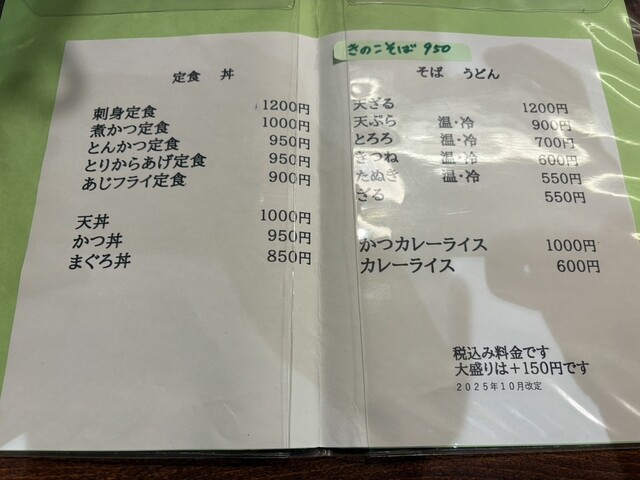 定食 丼
刺身定食 1200円
煮かつ定食 1000円
とんかつ定食 950円
とりからあげ定食 950円
あじフライ定食 900円
天丼 1000円
かつ丼 950円
まぐろ丼 850円
きのこそば 950
そば うどん
天ざる 1200円
天ぷら 温・冷 900円
とろろ 温・冷 700円
きつね 温・冷 600円
たぬき 温・冷 550円
ざる 550円
かつカレーライス 1000円
カレーライス 600円
税込み料金です
大盛りは+150円です
2025年10月改定